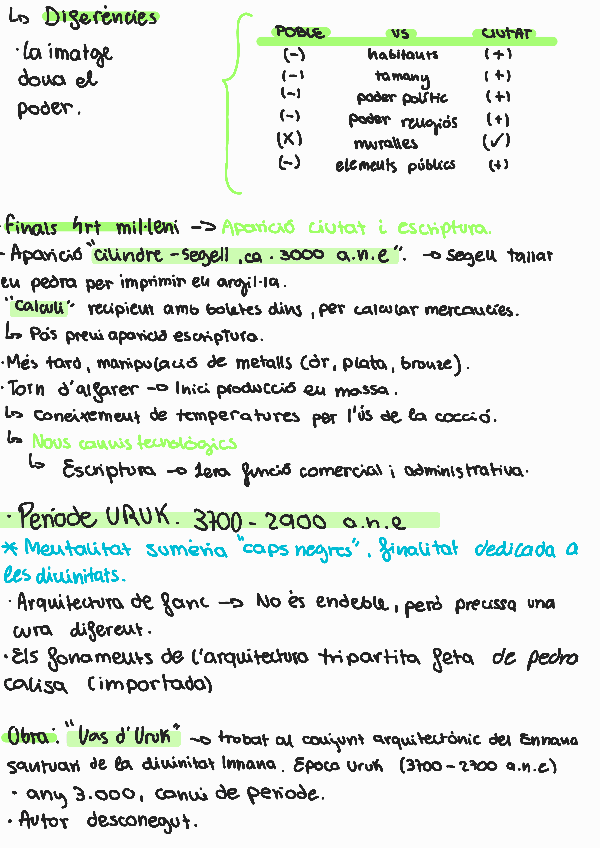 ↳ Diferències
· La imatge
dona el
poder.
POBLE VS CIUTAT
(-) habitants (+)
(-) tamany (+)
(-) poder polític (+)
(-) poder religiós (+)
(X) muralles (✓)
(-) elements públics (+)
finals 4rt mil·leni -> Aparició ciutat i escriptura.
- Aparició "cilindre - segell, ca. 3000 a.n.e". -> segell tallar
en pedra per imprimir en argil·la.
"calculi" recipient amb boletes dins, per calcular mercaucíes.
↳ Pós previ aparició escriptura.
· Més tard, manipulació de metalls (or, plata, bronze).
· Torn d'alfarer -> Inici producció en massa.
↳ Coneixement de temperatures per l'ús de la cocció.
↳ Nous canvis tecnològics
↳ Escriptura -> 1era funció comercial i administrativa.
· Període URUK. 3700 - 2900 a.n.e
* Mentalitat sumèria "caps negres", finalitat dedicada a
les divinitats.
· Arquitectura de fanc -> No és endeble, però precissa una
cura diferent.
· Els fonaments de l'arquitectura tripartita feta de pedra
calisa (importada)
Obra: "Vas d'Uruk" -> trobat al conjunt arquitectònic del Ennana
santuari de la divinitat Innana. Època Uruk (3700 - 2700 a.n.e)
· any 3.000, canvi de període.
· Autor desconegut.